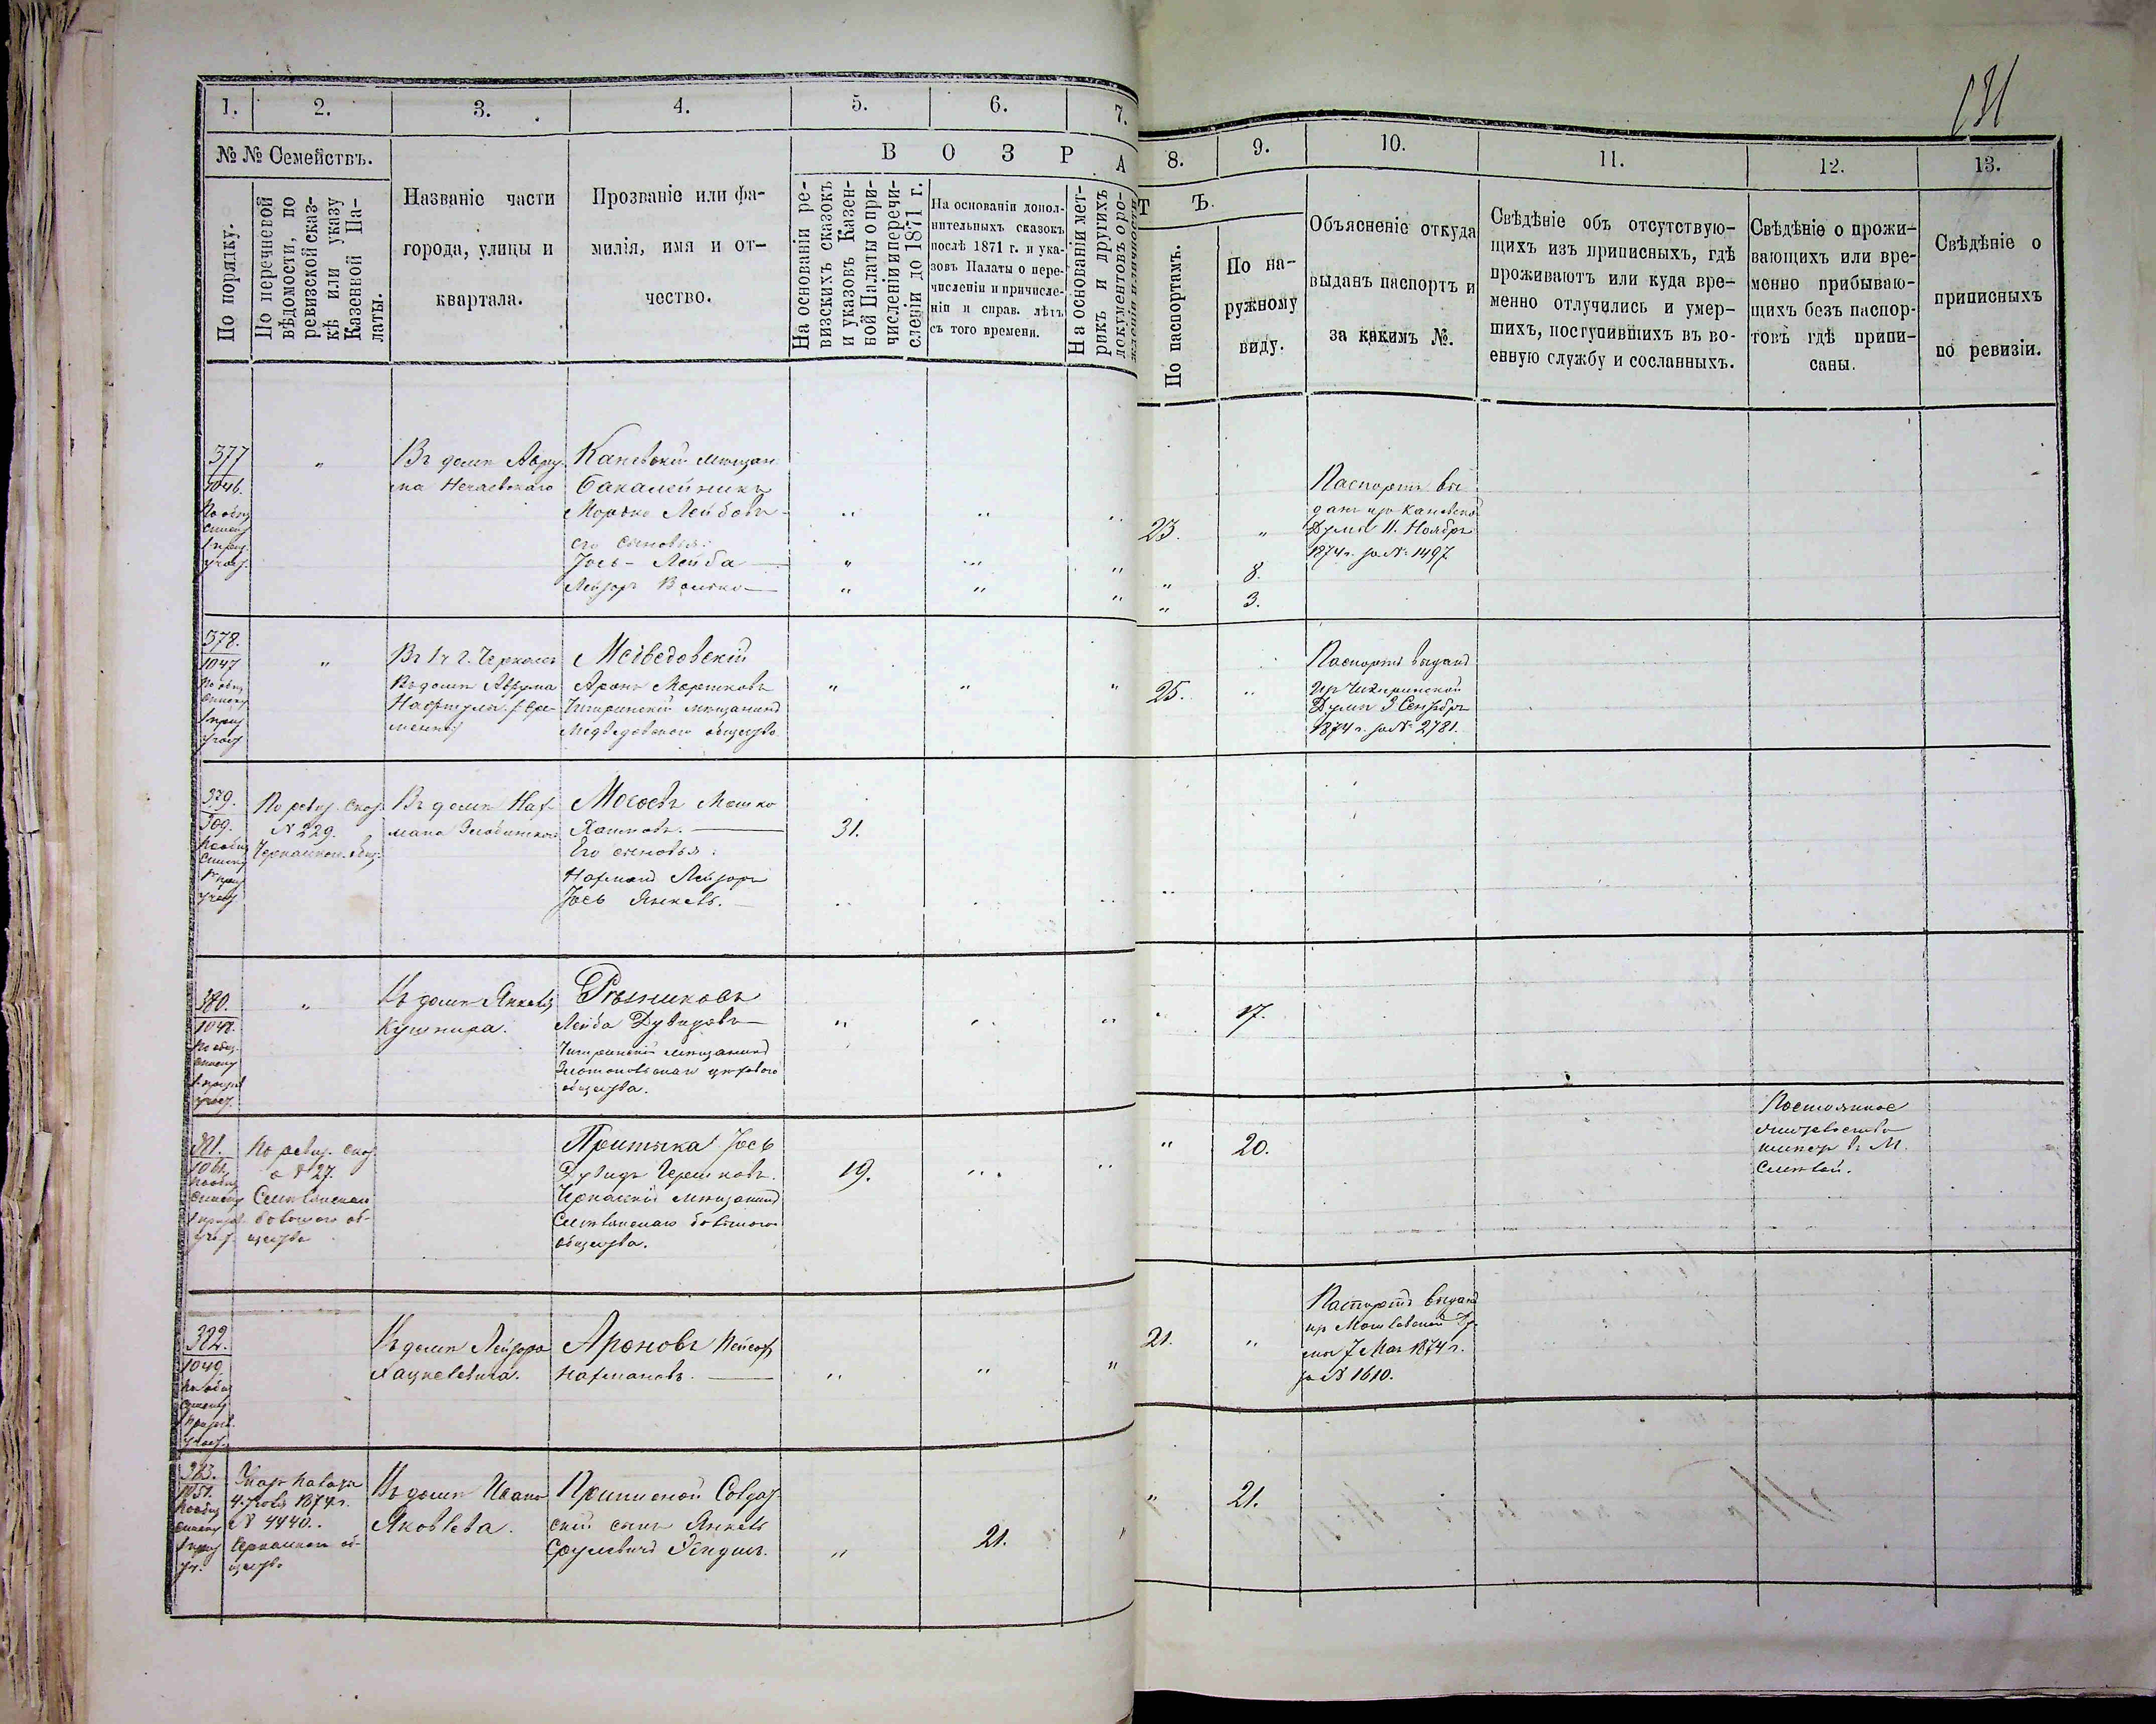 131
1.
2.
3.
4.
5.
6.
7.
8.
9.
10.
11.
12.
13.
№ № Семействъ.
По порядку.
По перечневой
вѣдомости, по
ревизской сказ-
кѣ или указу
Казенной Па-
латы.
Названіе части
города, улицы и
квартала.
Прозваніе или фа-
милія, имя и от-
чество.
В О З Р А
Т Ъ.
На основаніи ре-
визскихъ сказокъ
и указовъ Казен-
ной Палаты о при-
численіи и перечи-
сленіи до 1871 г.
На основаніи допол-
нительныхъ сказокъ
послѣ 1871 г. и ука-
зовъ Палаты о пере-
численіи и причисле-
ніи и справ. лѣтъ
съ того времени.
На основаніи мет-
рикъ и другихъ
документовъ о ро-
По паспортамъ.
По на-
ружному
виду.
Объясненіе откуда
выданъ паспортъ и
за какимъ №.
Свѣдѣніе объ отсутствую-
щихъ изъ приписныхъ, гдѣ
проживаютъ или куда вре-
менно отлучились и умер-
шихъ, поступившихъ въ во-
енную службу и сосланныхъ.
Свѣдѣніе о прожи-
вающихъ или вре-
менно прибываю-
щихъ безъ паспор-
товъ гдѣ припи-
саны.
Свѣдѣніе о
приписныхъ
по ревизіи.
377
1046.
По общ
списку
1 приз
участ
"
Въ домѣ Авру-
ма Нечаевскаго
Каневскій мѣщан
Бакалейникъ
Морько Лейбовъ
его сыновья:
Іось - Лейба
Лейзоръ Волько
23.
"
8.
3.
Паспортъ вы
данъ изъ Каневской
Думы 11. Ноября
1874 г. за № 1497
378.
1047
По общ
списку
1 приз
участ
"
Въ 1 ч. г. Черкасъ
Въ домѣ Аврума
Нафтула
Медведовскій
Аронъ Моршковъ
Чигиринскій мѣщанинъ
Медведовскаго общества
25.
"
Паспортъ выданъ
изъ Чигиринской
Думы 3 Сентября
1874 г. за № 2781.
379.
309.
По общ
списку
1 приз
участ
По ревиз. сказ.
№ 229.
Черкасскаго общ.
Въ домѣ Нах-
мана
Мосоевъ Мошко
Хаимовъ.
Его сыновья:
Нахманъ Лейзоръ
Іось Янкевъ.
31.
380.
1048.
По общ.
списку
1 призыв
участ.
"
Въ домѣ Янкеля
Кушнира.
Рѣзниковъ
Лейба Дувидовъ
Чигиринскій мѣщанинъ
Златопольскаго
общества.
17.
381.
По общ
списку
1 призыв
участ.
По ревиз. сказ
№ 27.
Смѣлянскаго
общества
Притыка Іось
Дувидъ Гершковъ.
Черкасскій мѣщанинъ
Смѣлянскаго
общества.
19.
"
20.
Постоянное
жительство
имѣетъ въ М.
Смѣлой.
382.
1049
По общ
списку
1 призыв.
участ.
Въ домѣ Лейзора
Хацкелевича.
Ароновъ Пейсах
Нахмановъ.
21.
"
Паспортъ выданъ
изъ Мошевской Ду-
мы 7 Мая 1874 г.
за № 1610.
383.
1051.
По общ
списку
1 приз
уч.
Указъ Палаты
4. Іюля 1874 г.
№ 4440.
Черкасскаго об-
щества
Въ домѣ Ивана
Яковлева.
Приписной Солдат-
скій сынъ Янкель
Сруловичъ
21.
"
21.